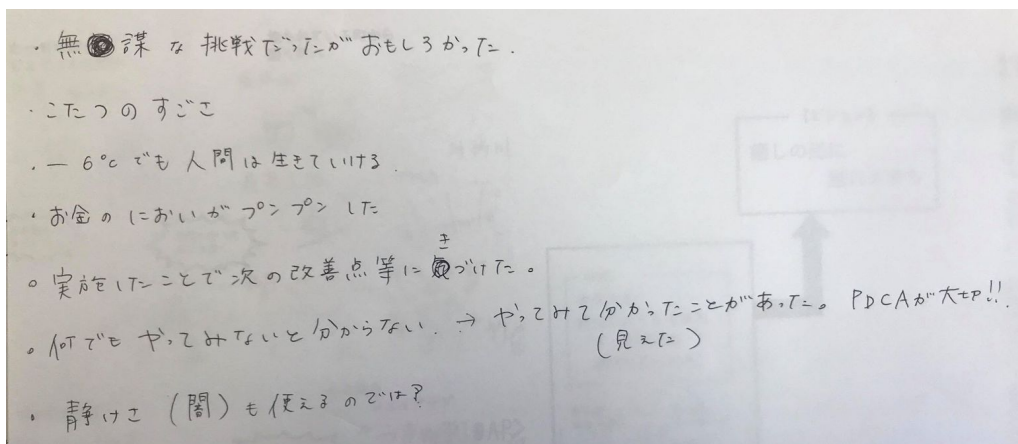 ・無謀な挑戦だったがおもしろかった.
・こたつのすごさ
・－6℃でも人間は生きていける.
・お金のにおいがプンプンした
○実施したことで次の改善点等にきづけた。
○何でもやってみないと分からない.→やってみて分かったことがあった。PDCAが大切!!.
(見えた)
・静けさ(闇)も使えるのでは?